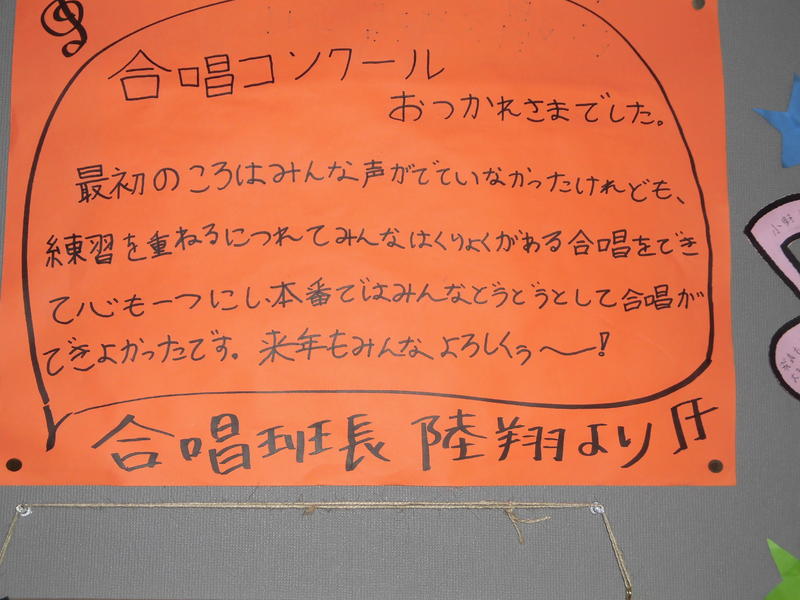 合唱コンクール
おつかれさまでした。
最初のころはみんな声がでていなかったけれども、
練習を重ねるにつれてみんなはくりょくがある合唱をでき
て心も一つにし、本番ではみんなどうどうとして合唱が
できよかったです。来年もみんなよろしくぅ〜!
合唱班長 陸翔より
小野